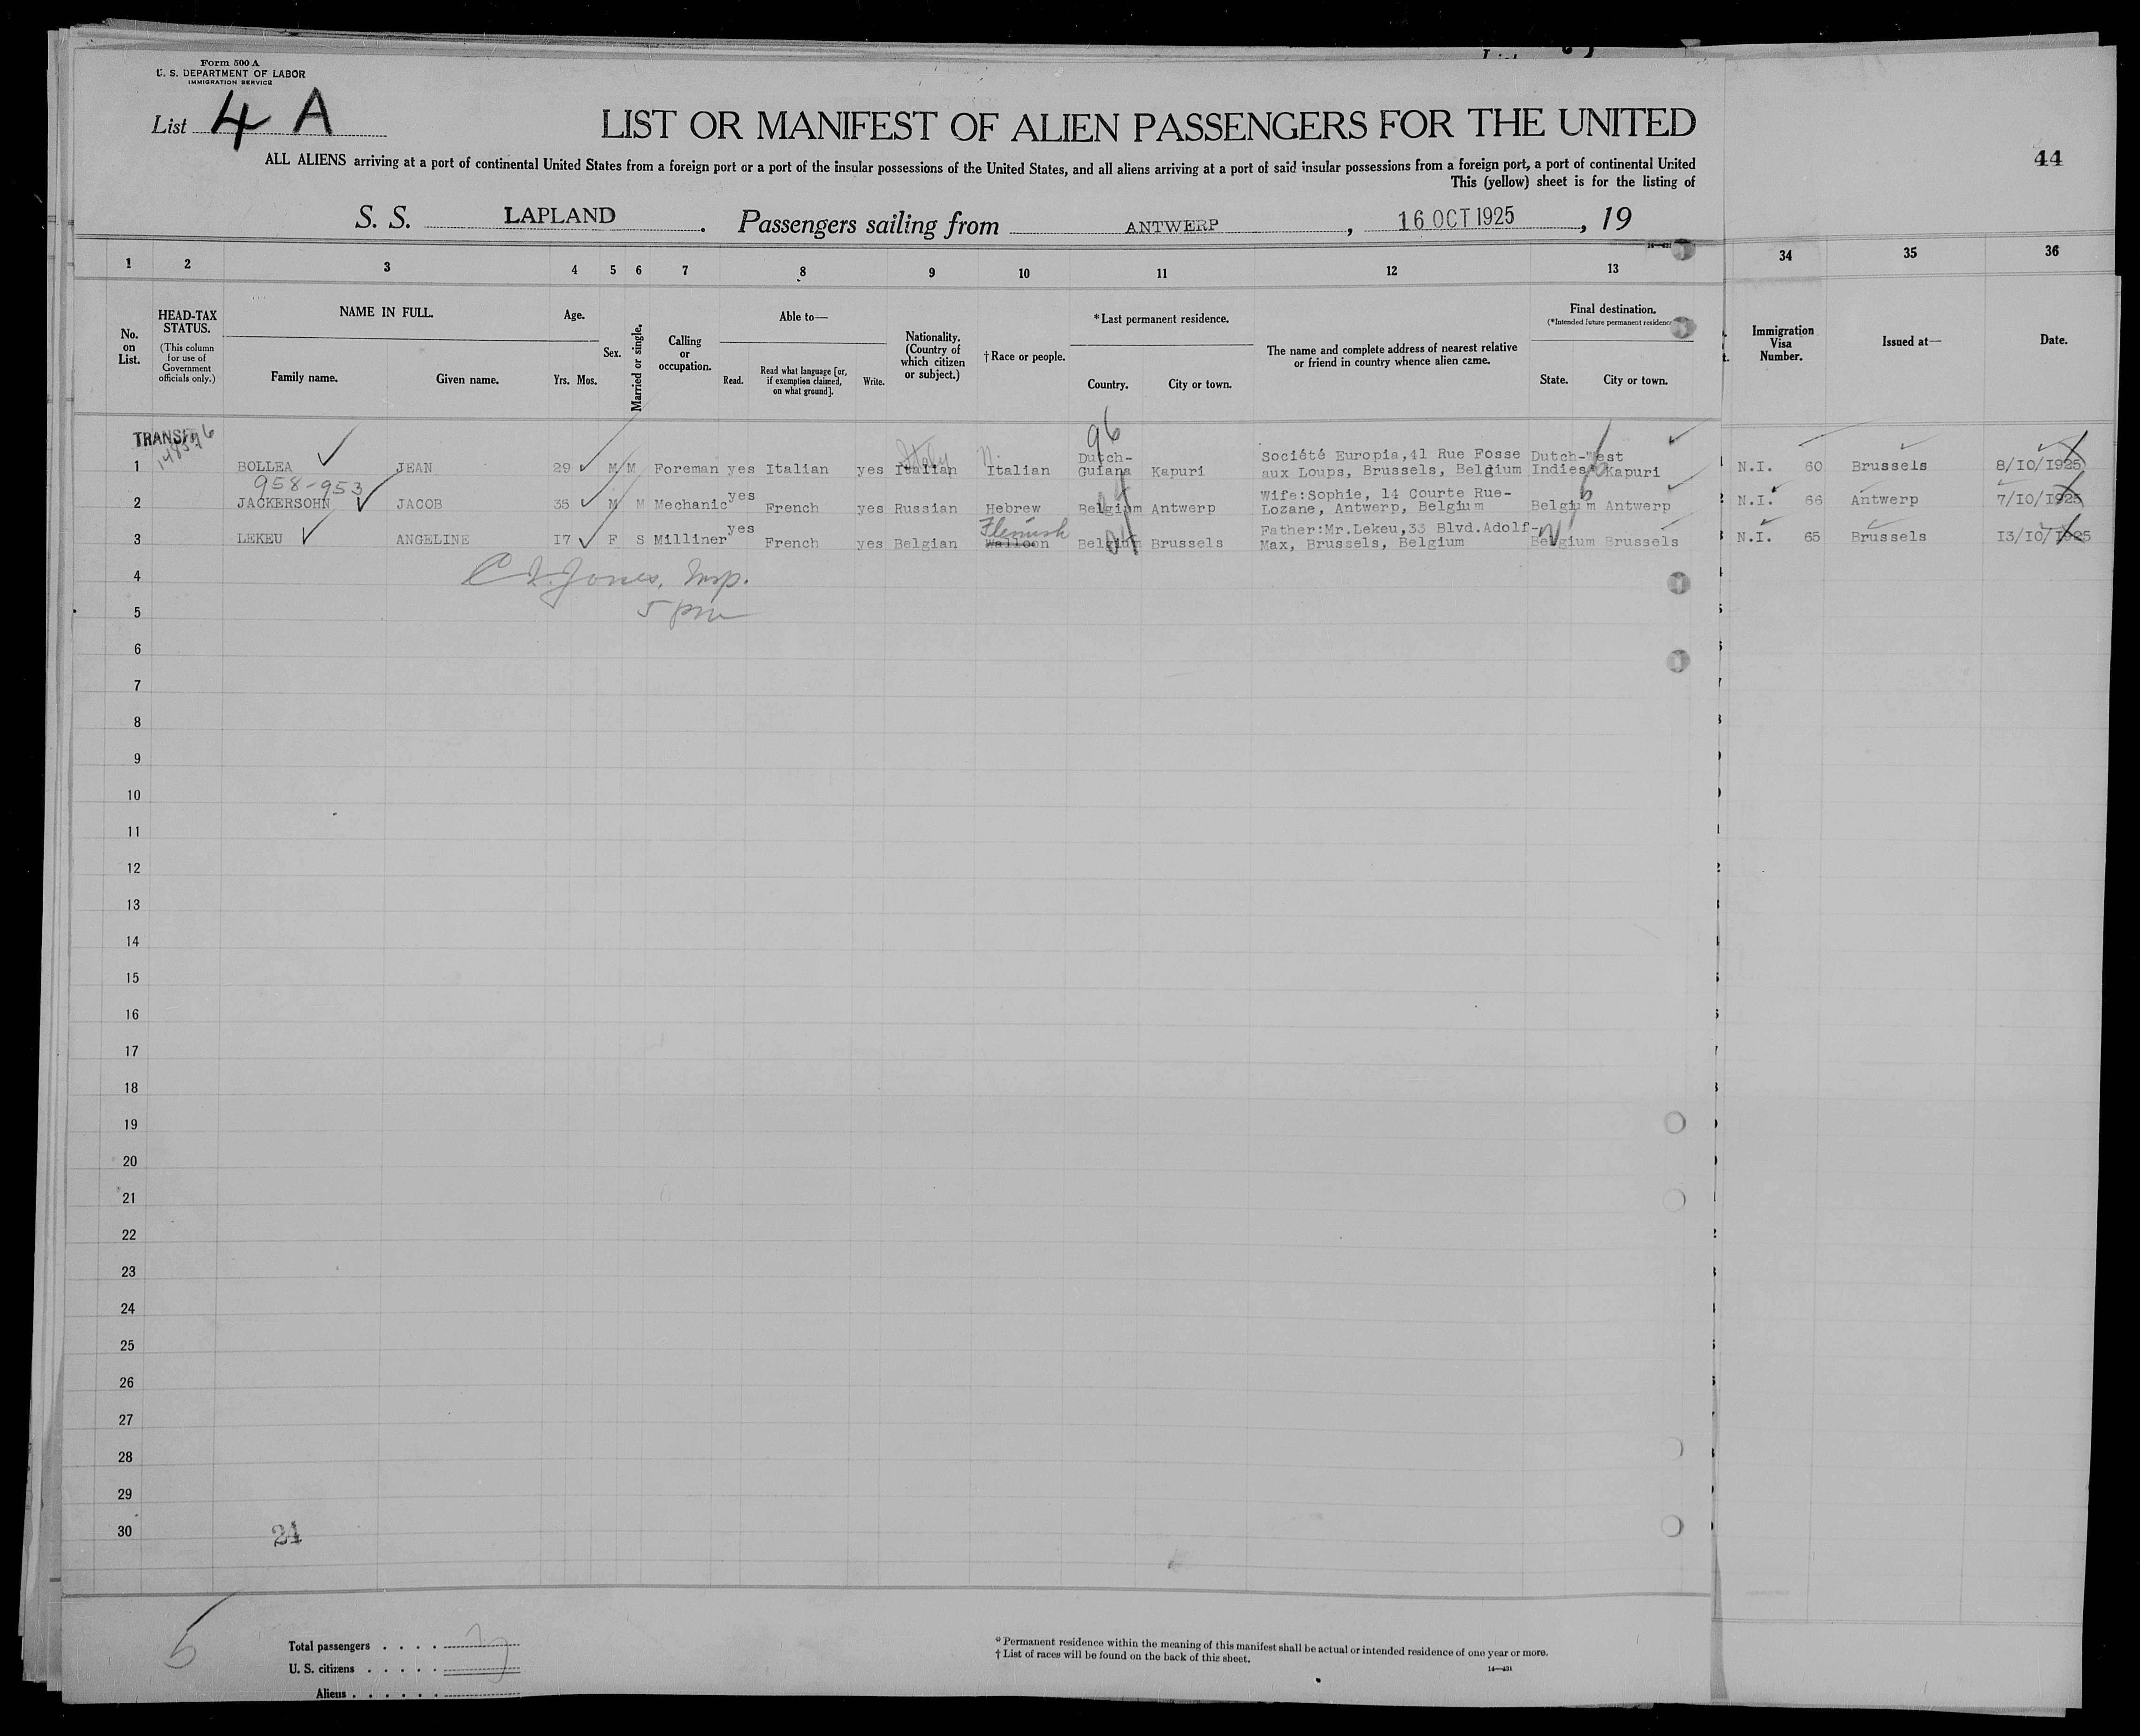 Form 500 A
U. S. DEPARTMENT OF LABOR
IMMIGRATION SERVICE
List 4 A
LIST OR MANIFEST OF ALIEN PASSENGERS FOR THE UNITED
44
ALL ALIENS arriving at a port of continental United States from a foreign port or a port of the insular possessions of the United States, and all aliens arriving at a port of said insular possessions from a foreign port, a port of continental United
This (yellow) sheet is for the listing of
S. S. LAPLAND. Passengers sailing from ANTWERP, 16 OCT 1925, 19
1 2 3 4 5 6 7 8 9 10 11 12 13 34 35 36
No. on List.
HEAD-TAX STATUS.
(This column for use of Government officials only.)
NAME IN FULL.
Family name. Given name.
Age.
Yrs. Mos.
Sex.
Married or single.
Calling or occupation.
Able to—
Read. Read what language [or, if exemption claimed, on what ground]. Write.
Nationality. (Country of which citizen or subject.)
†Race or people.
*Last permanent residence.
Country. City or town.
The name and complete address of nearest relative or friend in country whence alien came.
Final destination.
(*Intended future permanent residence
State. City or town.
Immigration Visa Number.
Issued at—
Date.
TRANSIT
96
Italy
1 BOLLEA JEAN 29 M M Foreman yes Italian yes Italian Italian Dutch-Guiana Kapuri Société Europia,41 Rue Fosse aux Loups, Brussels, Belgium Dutch-West Indies Kapuri N.I. 60 Brussels 8/10/1925
958-953
2 JACKERSOHN JACOB 35 M M Mechanic yes French yes Russian Hebrew Belgium Antwerp Wife:Sophie, 14 Courte Rue-Lozane, Antwerp, Belgium Belgium Antwerp N.I. 66 Antwerp 7/10/1925
Flemish
3 LEKEU ANGELINE 17 F S Milliner yes French yes Belgian Walloon Belgium Brussels Father:Mr.Lekeu,33 Blvd.Adolf-Max, Brussels, Belgium Belgium Brussels N.I. 65 Brussels 13/10/1925
4
Jones, Insp.
5
5 pm
6
7
8
9
10
11
12
13
14
15
16
17
18
19
20
21
22
23
24
25
26
27
28
29
30
24
5
Total passengers . . . .
U. S. citizens . . . . .
Aliens . . . . . .
* Permanent residence within the meaning of this manifest shall be actual or intended residence of one year or more.
† List of races will be found on the back of this sheet.
14—431